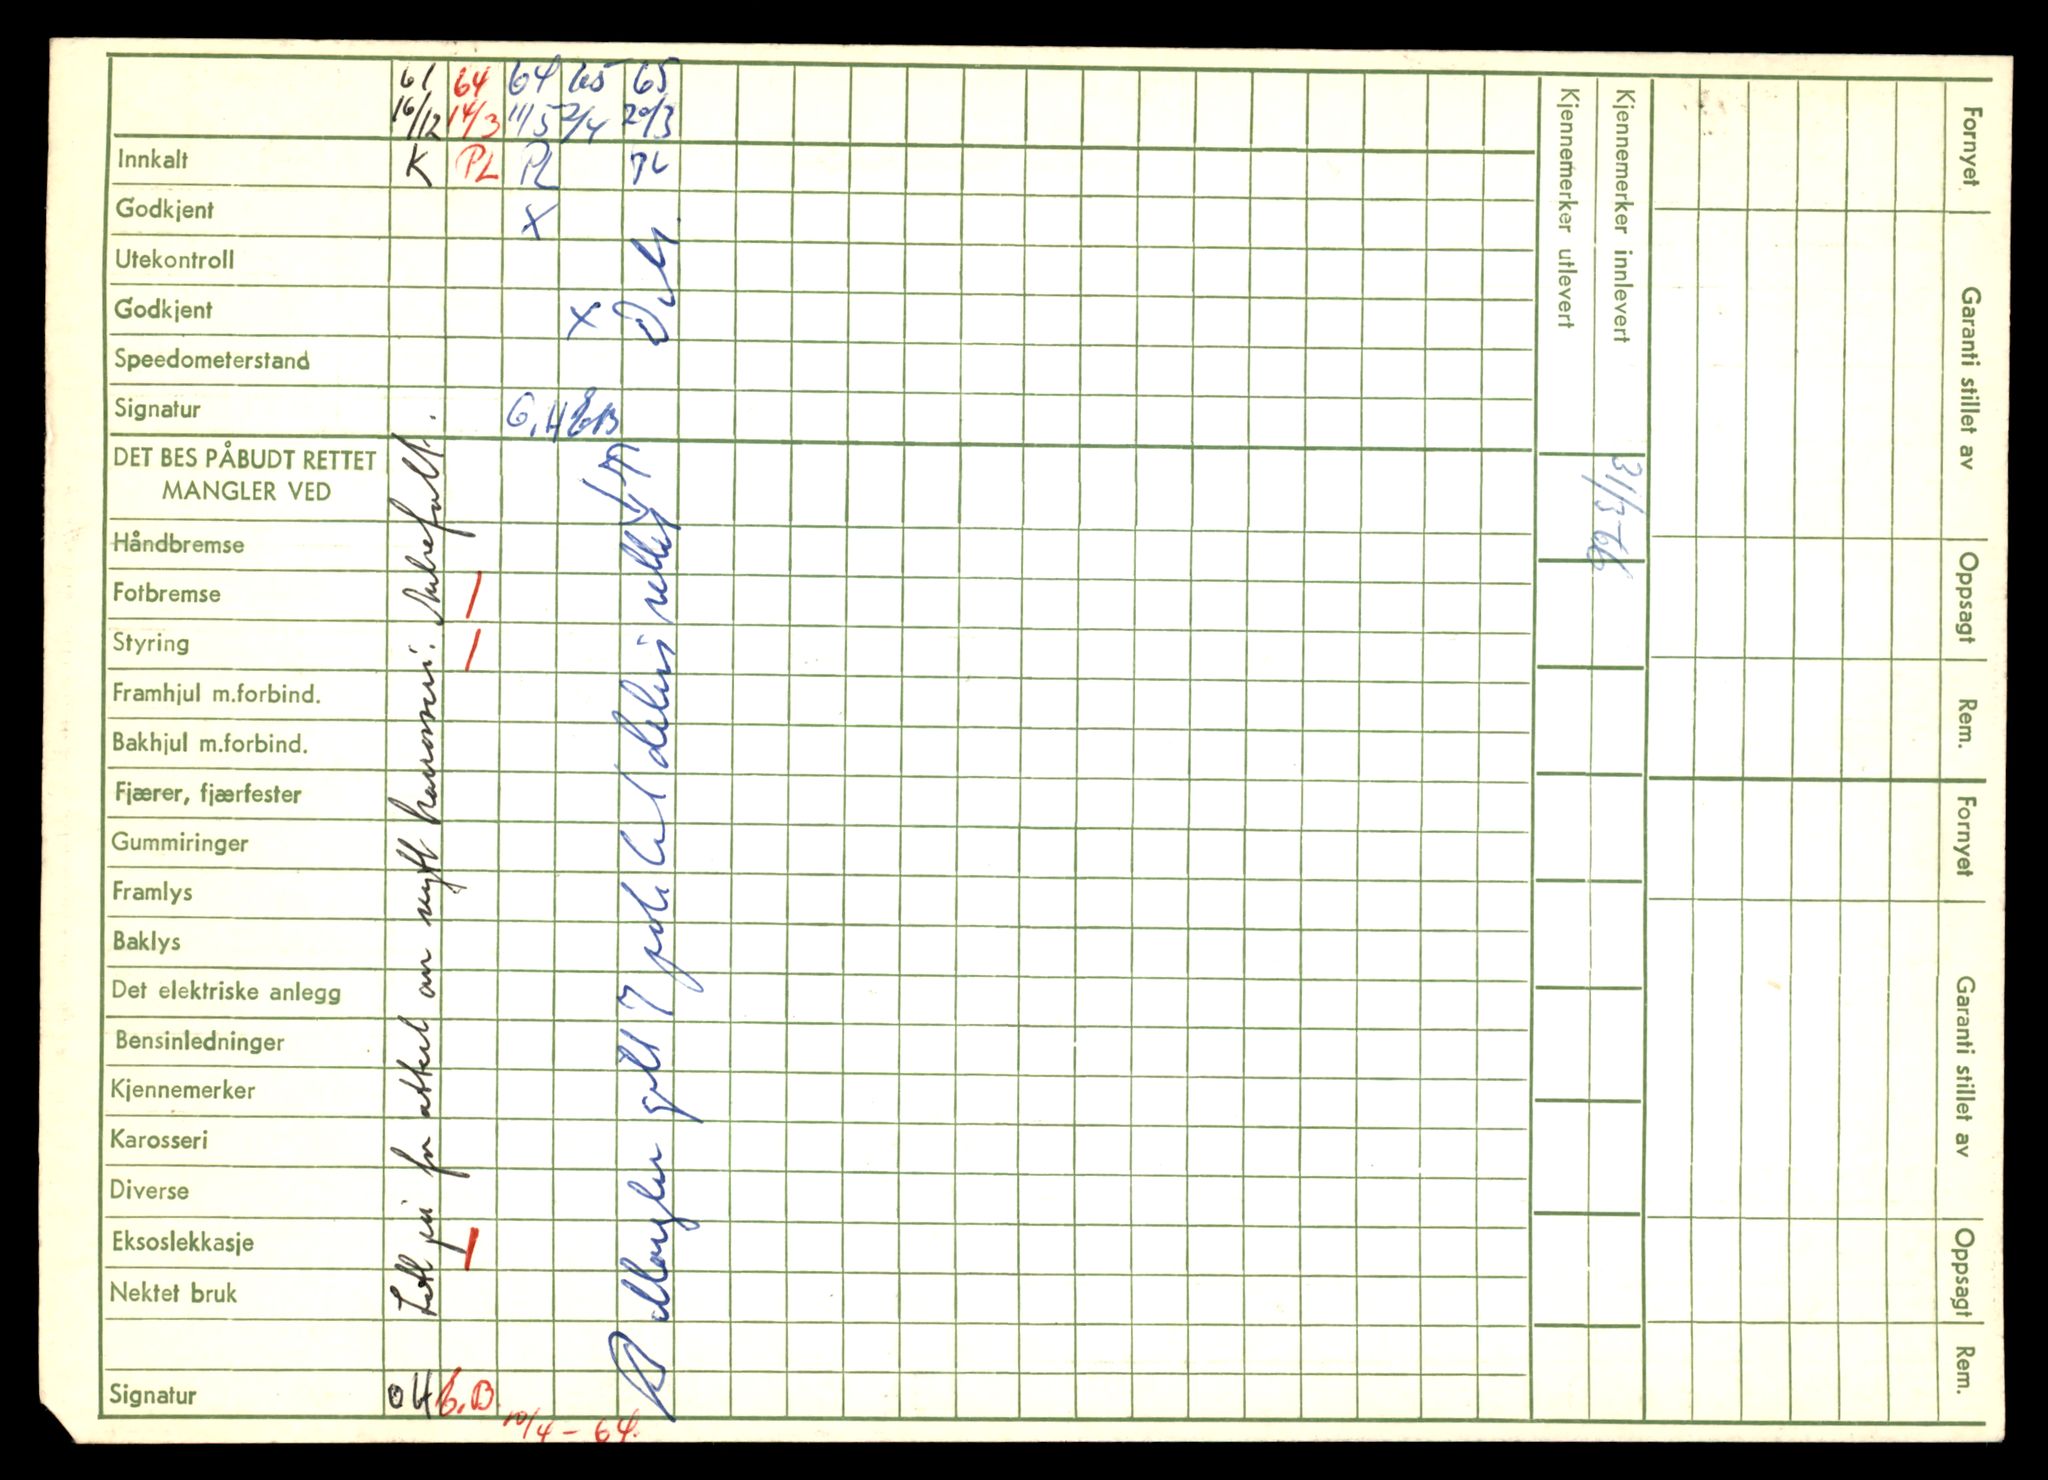 61 64 64 65 65
16/12 14/3 11/5 2/4 20/3
Innkalt K PL PL PL
Godkjent X
Utekontroll
Godkjent X
Speedometerstand
Signatur G.H
DET BES PÅBUDT RETTET
MANGLER VED
Håndbremse
Fotbremse /
Styring /
Framhjul m.forbind.
Bakhjul m.forbind.
Fjærer, fjærfester
Gummiringer
Framlys
Baklys
Det elektriske anlegg
Bensinledninger
Kjennemerker
Karosseri
Diverse
Eksoslekkasje /
Nektet bruk
Signatur OH G.B.
10/4 - 64.
Tatt på for attest om nytt karosseri.
Kjennemerker utlevert
Kjennemerker innlevert
31/3-66
Fornyet
Garanti stillet av
Oppsagt
Rem.
Fornyet
Garanti stillet av
Oppsagt
Rem.